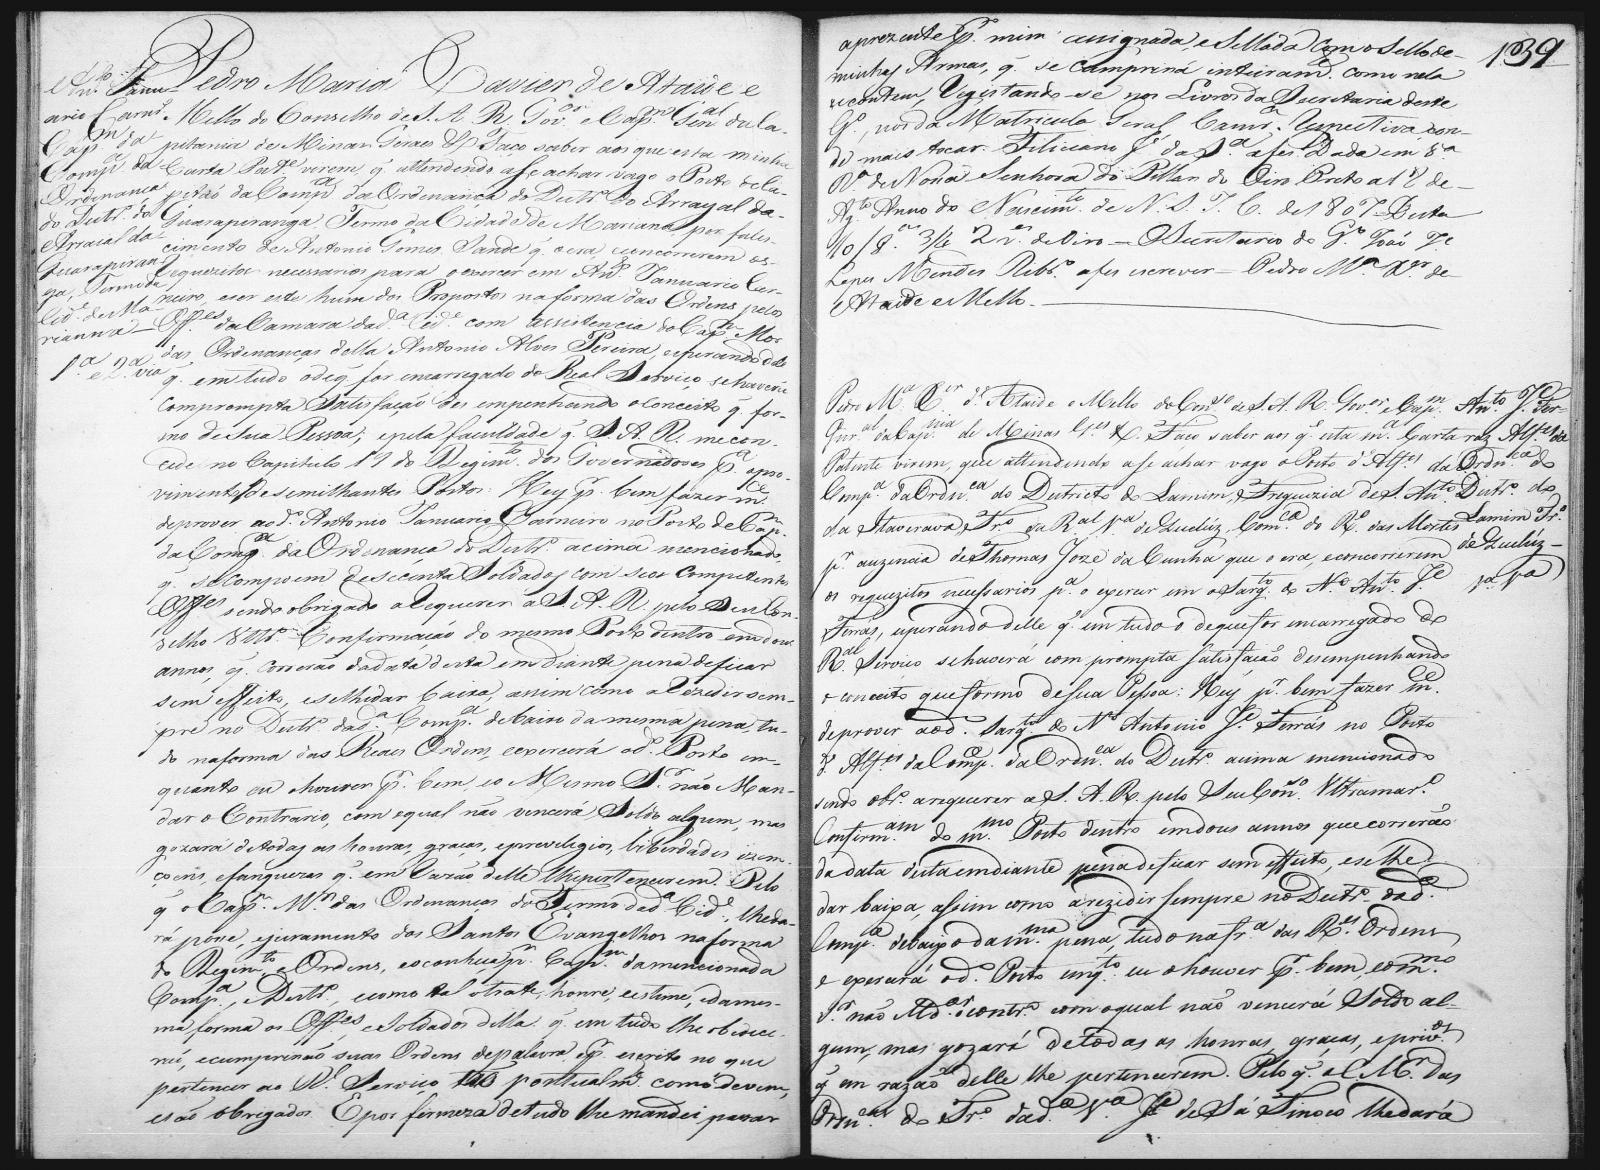 Ant.º Janu
ario Carnr.º
Cap.m da
Comp.ª da
Ordenança
do Destr.º do
Arraial da
Guarapiran
ga, Termo da
Cid.e de Ma
rianna
1.ª e 2.ª via
Pedro Maria Xavier de Ataide e
Mello do Conselho de S. A. R. Gov.or e Cap.m Gen.al da Ca-
pitania de Minas Geraes &.ª Faço saber aos que esta minha
Carta Pat.e virem, q̃ attendendo a se achar vago o Posto de Ca-
pitão da Comp.ª da Ordenança do Destr.º do Arrayal da
Guarapiranga Termo da Cidade de Mariana, por fales-
cimento de Antonio Gomes Sande q̃ o era, e concorrerem os
requezitos necessarios para o exercer em Ant.º Januario Car-
neiro, e ser este hum dos Propostos na forma das Ordens, pelos
Off.es da Camara da d.ª Cid.e com assistencia do Cap.m Mor
das Ordenanças della Antonio Alves Pereira, esperando delle
q̃ em tudo o de q̃ for encarregado do Real Serviço se haverá
com prompta satisfação des empenhando o conceito q̃ for-
mo de sua Pessoa; e pela faculdade q̃ S. A. R. me con-
cede no Capitulo 19 do Regim.to dos Governadores p.ª o pro-
vimento de semilhantes Postos: Hey p.r bem fazer m.ce
de prover ao d.º Antonio Januario Carneiro no Posto de Cap.m
da Comp.ª da Ordenança do Destr.º acima mencionado,
q̃ se compoem de sescenta Soldados com seos competentes
Off.es sendo obrigado a requerer a S. A. R. pelo Seu Con-
selho Ultr.º Confirmação do mesmo Posto dentro em dous
annos, q̃ correrão da data desta em diante pena de ficar
sem effeito, e se lhe dar baixa, assim como a rezidir sem-
pre no Destr.º da d.ª Comp.ª debaixo da mesma pena, tu-
do na forma das Reaes Ordens, e exercerá o d.º Posto em-
quanto eu o houver p.r bem, e o Mesmo S.r não Man-
dar o Contrario, com equal não vencerá Soldo algum, mas
gozará de todas as honras, graças, e previlegios, liberdades izem-
coens, e franquezas q̃ em razão delle lhe pertencerem. Pelo
q̃ o Cap.m M.or das Ordenanças do Termo da d.ª Cid.e lhe da-
rá posse, e juramento dos Santos Evangelhos na forma
do Regim.to e Ordens, e o conheça p.r Cap.m da mencionada
Comp.ª, e Destr.º, e como tal o trate, honre, e estime, e da mes-
ma forma os Off.es e Soldados della q̃ em tudo lhe obedece-
rão, e cumprirão suas Ordens de palavra, e p.r escrito no que
pertencer ao R.l Serviço, tão pontualm.e como devem,
e são obrigados. E por firmeza de tudo lhe mandei passar
139
a prezente p.r mim assignada, e Sellada com o Sello de
minhas Armas, q̃ se cumprirá inteiram.e como nela
se contem, Registando-se nos Livros da Secretaria deste
G.º, nos da Matricula Geral Camr.ª respectiva e on-
de mais tocar. Feliciano J.e da S.ª a fes. Dada em V.ª
R.ª de Nossa Senhora do Pillar do Oiro Preto a 12 de
Ag.to Anno do Nascim.to de N. S. J. C. de 1807 Desta
10/8.as 3/4 2 r.es de Oiro — O Secretario do G.º João J.e
Lopes Mendes Ribr.º a fes escrever — Pedro M.ª X.er de
Ataide e Mello.
Ant.to J.e
Fer-
Alf.es da
Ordn.ca do
Destr.º do
Lamim Tr.º
de Queluz —
1.ª V.ª
Pedro M.ª X.er d'Ataide e Mello do Con.so de S. A. R. Gov.or e Cap.m
Gen.al da Cap.nia de Minas G.es &. Faço saber aos q̃ esta m.ª Carta
Patente virem, que attendendo a se achar vago o Posto d'Alf.es da
Comp.ª da Ordn.ca do Destricto do Lamim, Freguezia de S. Ant.º
da Itaverava, Tr.º da R.al V.ª de Queluz, Com.ca do R.º das Mortes
p.r auzencia de Thomas Joze da Cunha que o era, e concorrerem
os requezitos necessarios p.ª o exercer em o Sarg.to do N.º Ant.to J.e
Ferrás, esperando delle q̃ em tudo o de que for encarregado do
R.al Serviço se haverá com prompta satisfação desempenhando
o conceito que formo de sua Pessoa: Hey p.r bem fazer m.ce
de prover ao d. Sarg.to do N.º Antonio J.e Ferrás no Posto
d'Alf.es da Comp.ª da Ordn.ca do Destr.º acima mencionado
sendo obr.º a requerer a S. A. R. pelo Seu Con.so Ultramar.º
Confirm.am do m.mo Posto dentro em dous annos que correrão
da data desta em diante pena de ficar sem effeito, e se lhe
dar baixa, assim como a rezidir sempre no Destr.º da d.ª
Comp.ª debaixo da m.ma pena, tudo na fr.ª das R.es Ordens
e exercerá o d.º Posto emq.to eu o houver p.r bem, e o m.mo
S.or não Md.ar o contr.º com o qual não vencerá Soldo al-
gum, mas gozará de todas as honras, graças, e priv.os
q̃ em razão delle lhe pertencerem. Pelo q̃ o C. M.r das
Ordn.as do Tr.º da d.ª V.ª J.e de Sá Tinoco lhe dará